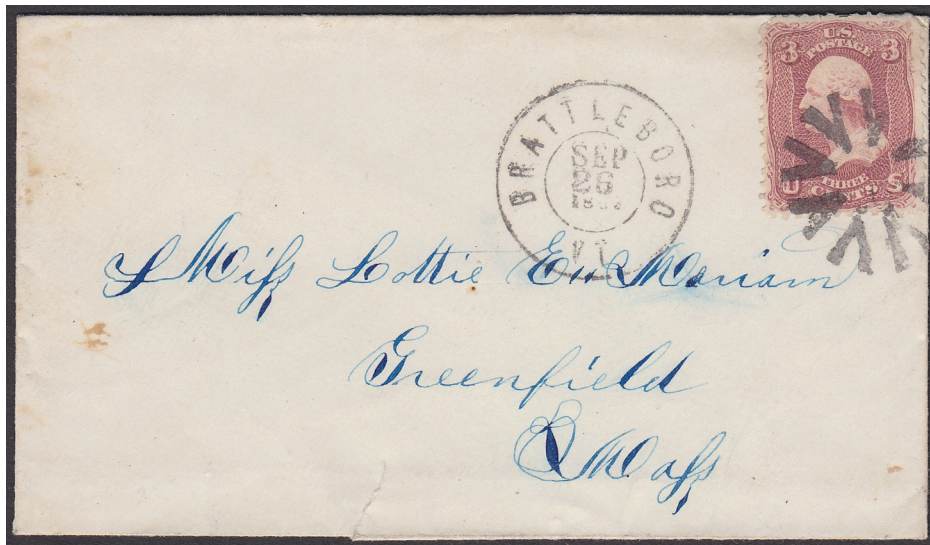 3 U.S. POSTAGE 3
U THREE CENTS S
BRATTLEBORO
SEP
26
VT.
Miss Lottie E. Meriam
Greenfield
Mass